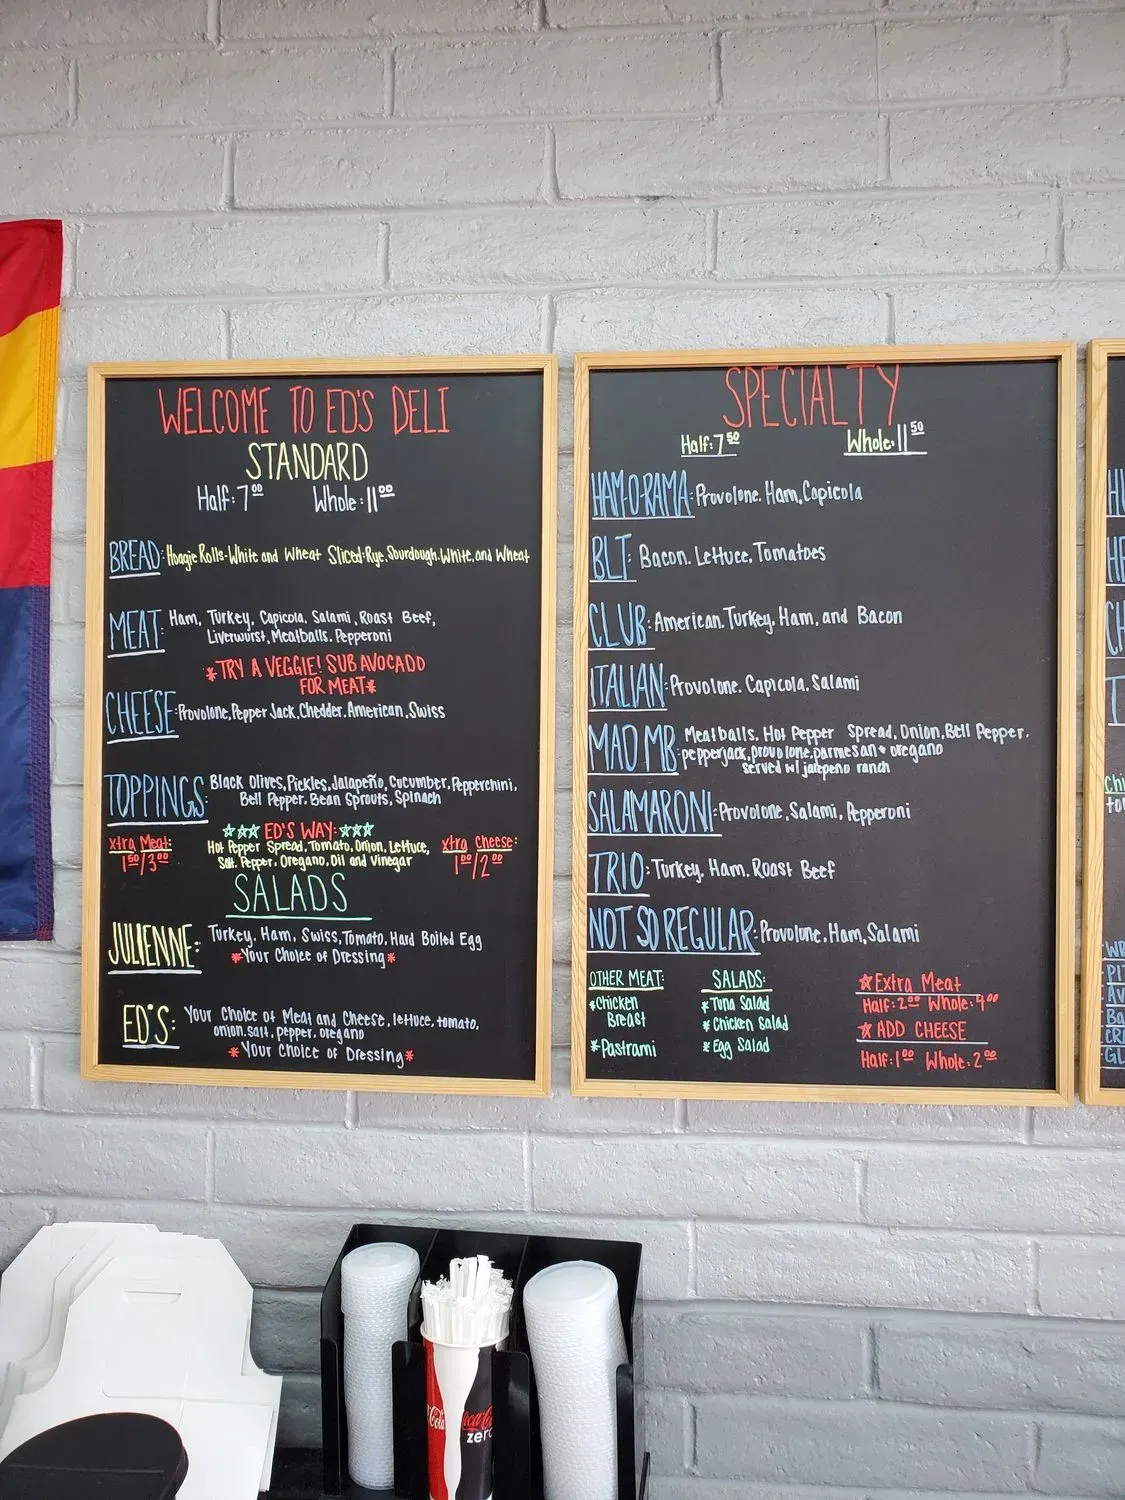 WELCOME TO ED'S DELI
STANDARD
Half: 7⁰⁰ Whole: 11⁰⁰
BREAD: Hoagie Rolls-White and Wheat Sliced-Rye, Sourdough, White, and Wheat
MEAT: Ham, Turkey, Capicola, Salami, Roast Beef,
Liverwurst, Meatballs, Pepperoni
*TRY A VEGGIE! SUB AVOCADO
FOR MEAT*
CHEESE: Provolone, Pepper Jack, Chedder, American, Swiss
TOPPINGS: Black Olives, Pickles, Jalapeño, Cucumber, Pepperchini,
Bell Pepper, Bean Sprouts, Spinach
☆☆☆ ED'S WAY: ☆☆☆
Hot Pepper Spread, Tomato, Onion, Lettuce,
Salt, Pepper, Oregano, Oil and Vinegar
xtra Meat:
1⁵⁰/3⁰⁰
xtra Cheese:
1⁰⁰/2⁰⁰
SALADS
JULIENNE: Turkey, Ham, Swiss, Tomato, Hard Boiled Egg
*Your Choice of Dressing*
ED'S: Your Choice of Meat and Cheese, lettuce, tomato,
onion, salt, pepper, oregano
*Your Choice of Dressing*
SPECIALTY
Half: 7⁵⁰ Whole: 11⁵⁰
HAM-O-RAMA: Provolone, Ham, Capicola
BLT: Bacon, Lettuce, Tomatoes
CLUB: American, Turkey, Ham, and Bacon
ITALIAN: Provolone, Capicola, Salami
MAD MB: Meatballs, Hot Pepper Spread, Onion, Bell Pepper,
pepperjack, provolone, parmesan + oregano
served w/ jalapeño ranch
SALAMARONI: Provolone, Salami, Pepperoni
TRIO: Turkey, Ham, Roast Beef
NOT SO REGULAR: Provolone, Ham, Salami
OTHER MEAT:
*Chicken
Breast
*Pastrami
SALADS:
*Tuna Salad
*Chicken Salad
*Egg Salad
☆Extra Meat
Half: 2⁰⁰ Whole: 4⁰⁰
☆ADD CHEESE
Half: 1⁰⁰ Whole: 2⁰⁰
Coca-Cola
zero